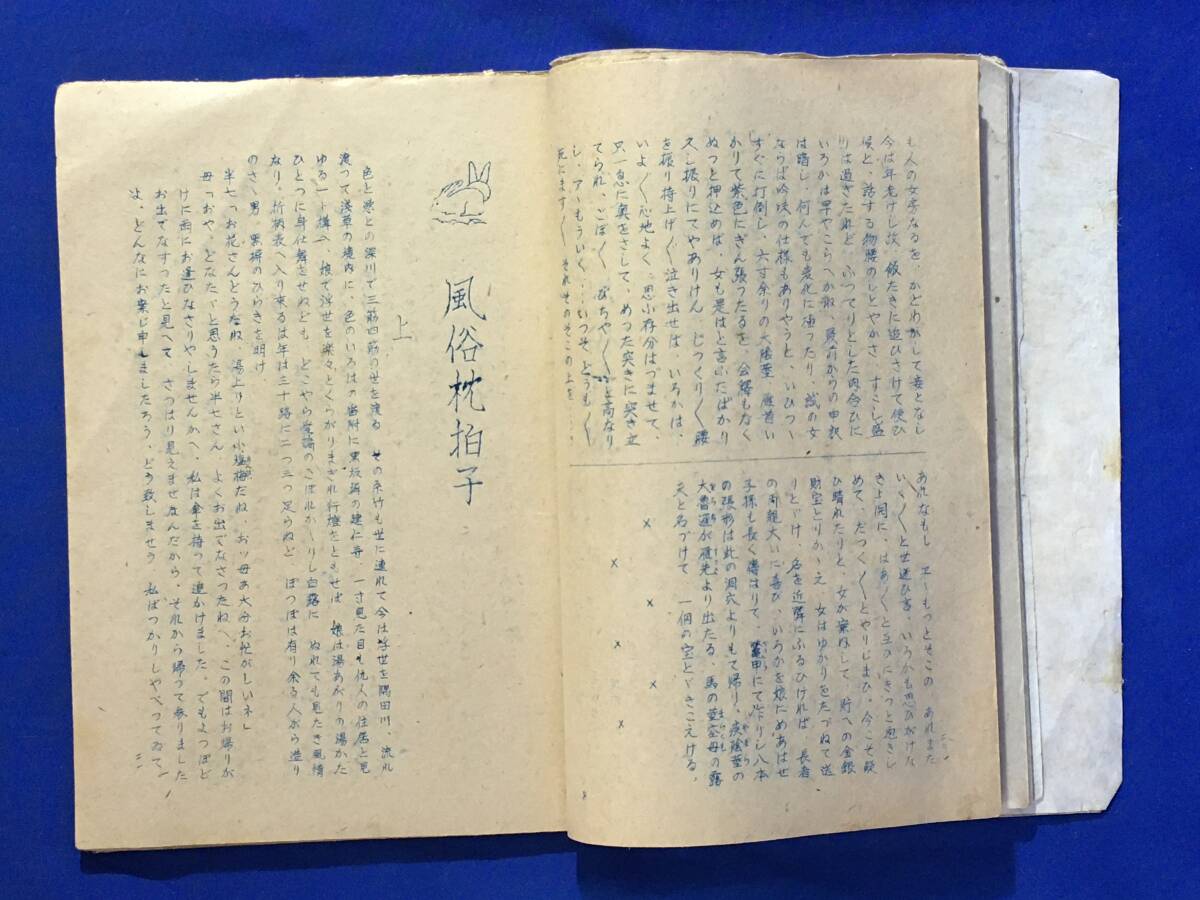 も人の女房なるを、かどわかして妾となし
今は年老けし故、飯たきに追ひさげて使ひ
候と、話する物腰のしとやかさ、すこし盛
りは過ぎたれど、ふつてりとした肉合ひに
いろかは早やこらへか、最前からの申訳
は暗し、何んでも変化に極つたり、試の女
ならば吟味の仕様もありやうと、いひつゝ
すぐに打倒し、六寸余りの大陰茎、雁首い
かりて紫色にぎん張つたるを、会釈もなく
ぬつと押込めば、女も是はと言いたばかり
久し振りにてやありけん、じつくり〳〵腰
を振り持上げ〳〵泣き出せば、いろかは、
いよ〳〵心地よく、思ふ存分はづませて、
只一息に奥をさして、めつた突きに突き立
てられ、ごぼ〳〵ぴちや〳〵と高なり
し、アゝもういく、…いつそどうも〳〵
死にます〳〵それそのそこの上を……
あれなもし エゝもつとそこの あれまた
いく〳〵と世迷ひ言、いろかも思ひがけな
きよ開に、はあ〳〵と互のにきつと抱きし
めて、だつく〳〵とやりじまひ、今こそ疑
ひ晴れたりと、女が案内して、貯への金銀
財宝とりかへえ 女はゆかりをたづねて送
りとゞけ、名を近隣にふるひければ 長者
の両親大いに喜び、いろかを娘にめあはせ
子孫も長く傳はりて、鼈甲にてルドリン八本
の張形は此の洞穴よりもて帰り、疾陰茎の
大曹運が雁先より出たる、馬の茎空母の露
天と名づけて 一個の宝とゞきこえける。
× × × × × ×
風俗枕拍子
上
色と恋との深川で三筋四筋の世を渡る その糸竹も世に連れて今は浮世を隅田川、流れ
渡つて浅草の境内に、色のいろはの当附に黒板塀の建仁寺、一寸見た目も仇人の住居と見
ゆる一ト構へ 娘で浮世を楽々とくらがりまぎれ行燈をともせば 娘は湯あがりの湯かた
ひとつに身仕舞させねども どこやら愛嬌のこぼれかゝりし白露に ぬれても見たき風情
なり。折柄表へ入り來るは年は三十路に二つ三つ足らねど ぽつぽは有り余る人がら造り
のさゝ男。黒塀のひらきを明け
半七「お花さんどうだね、湯上りとい小塩梅だね、おッ母あ大分お忙がしいネ」
母「おや、どなたゝと思うたら半七さん よくお出でなさつたねへ、この間はお帰りが
けに雨にお逢ひなさりやしませんかへ、私は傘を持つて追かけました。でもよつぽど
お出でなすつたと見へて さつはり見えませなんだから それから帰つて参りました
よ、どんなにお案じ申しましたろう、どう致しませう 私ばつかりしやべつてゐて